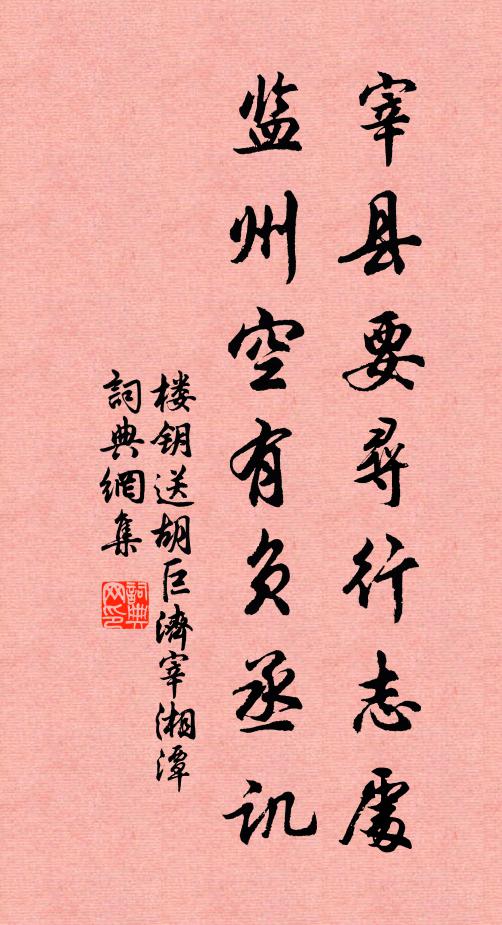 宰县要寻行志处
监州空有负丞讥
楼钥送胡巨济宰湘潭
词典网集
词典网印